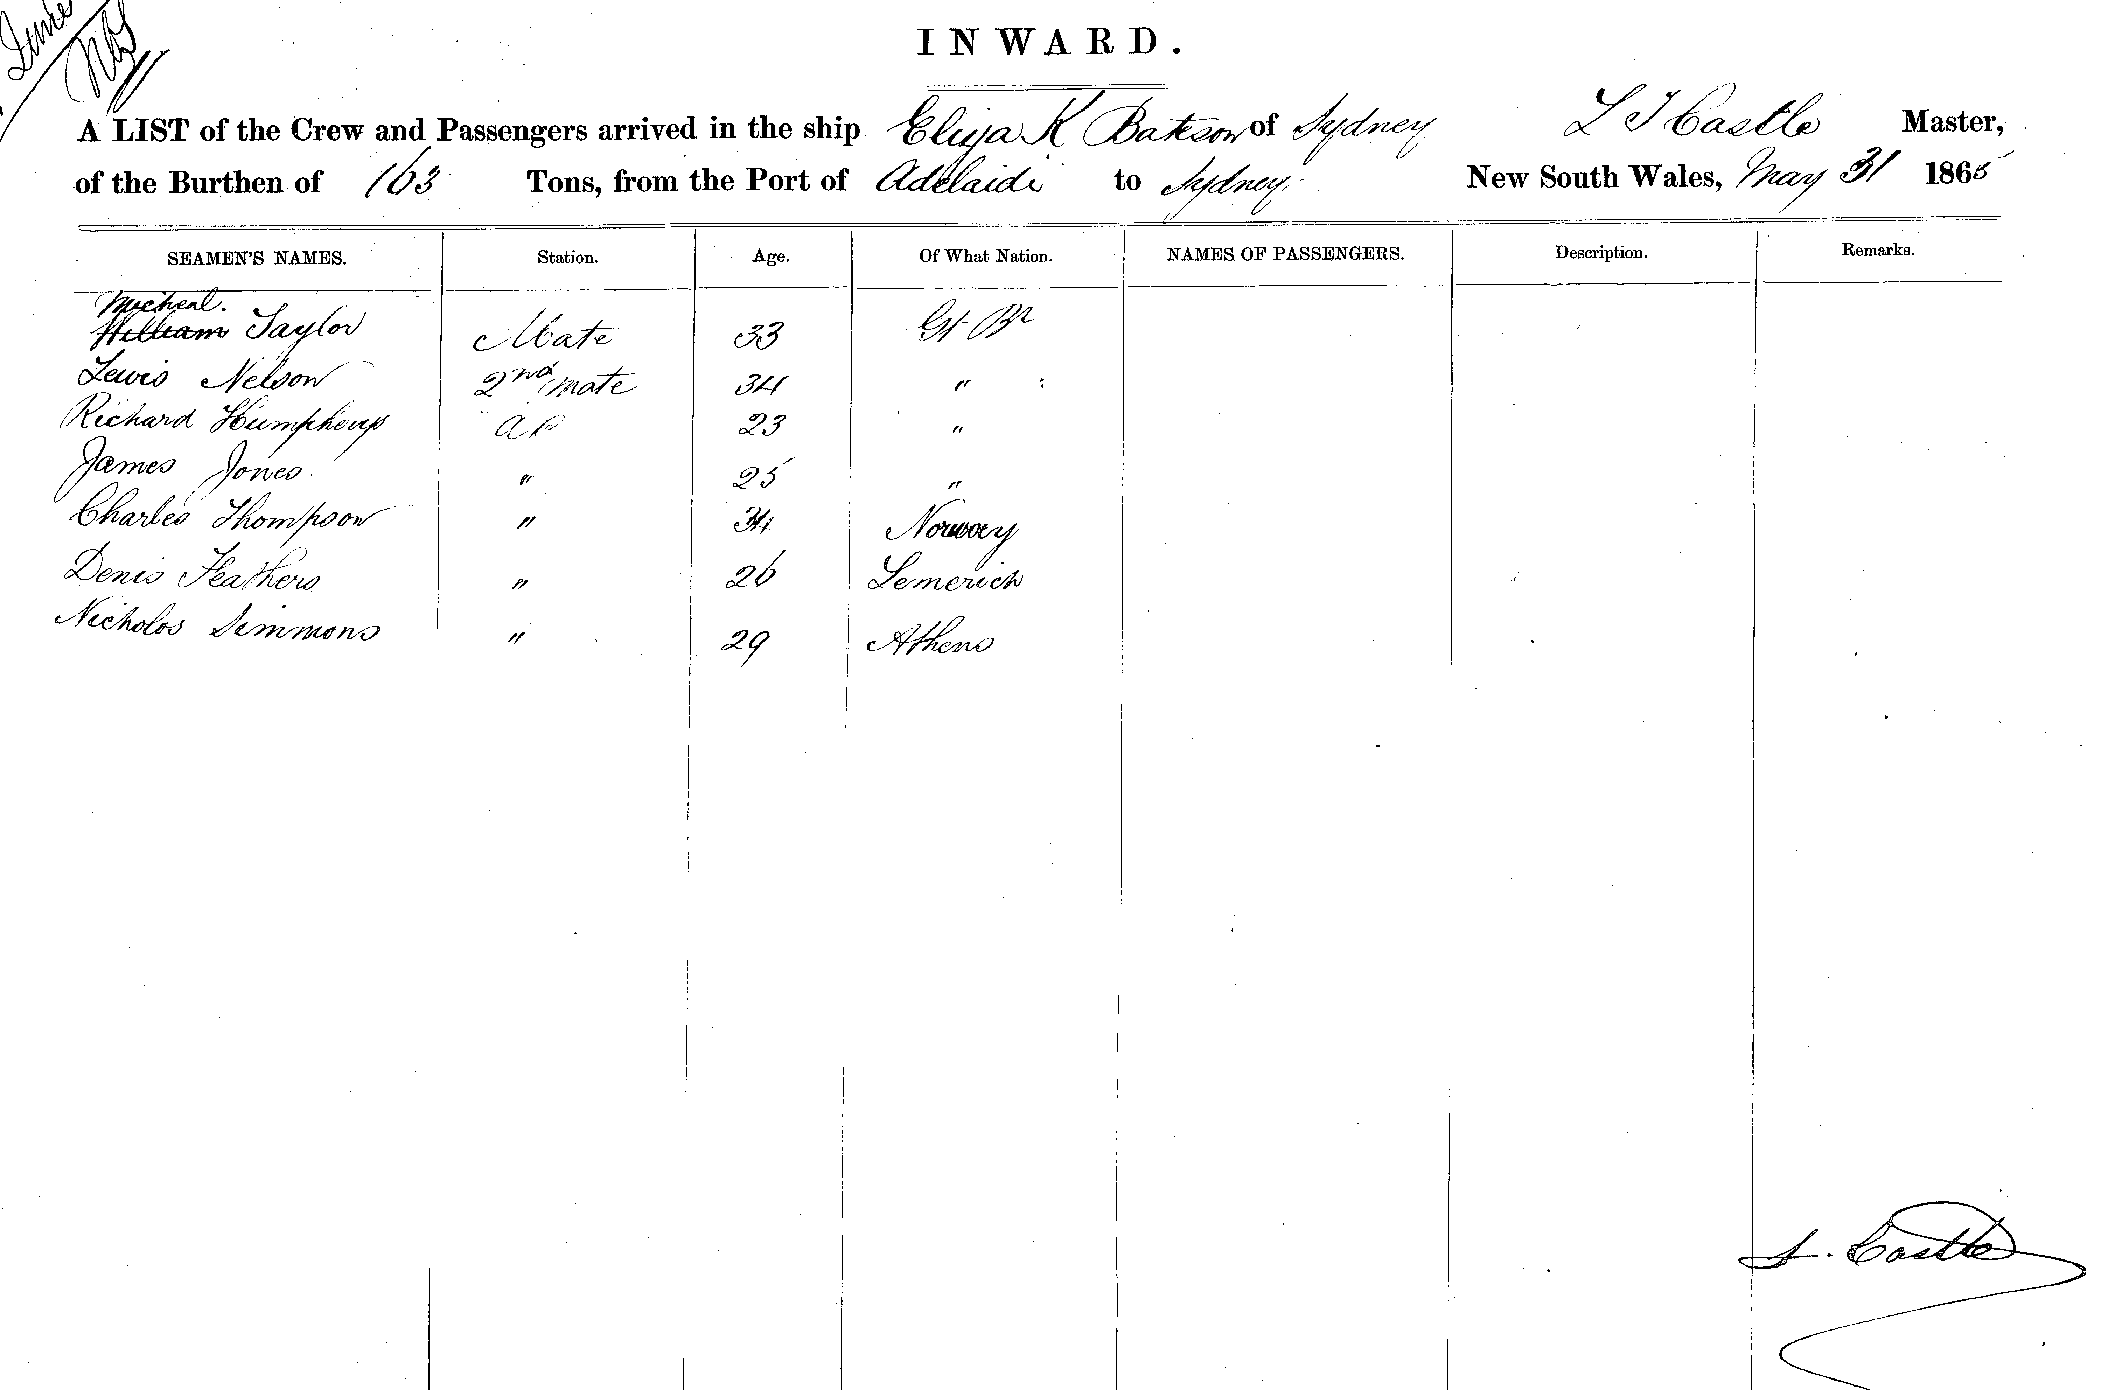 June
INWARD.
A LIST of the Crew and Passengers arrived in the ship Eliza K Bateson of Sydney L T Castle Master,
of the Burthen of 163 Tons, from the Port of Adelaide to Sydney New South Wales, May 31 1865
SEAMEN'S NAMES. Station. Age. Of What Nation. NAMES OF PASSENGERS. Description. Remarks.
Micheal.
William Taylor Mate 33 Gt Br
Lewis Nelson 2nd mate 34 "
Richard Humphreys AB 23 "
James Jones " 25 "
Charles Thompson " 34 Norway
Denis Feathers " 26 Lemerick
Nicholos Simmons " 29 Athens
L. Castle